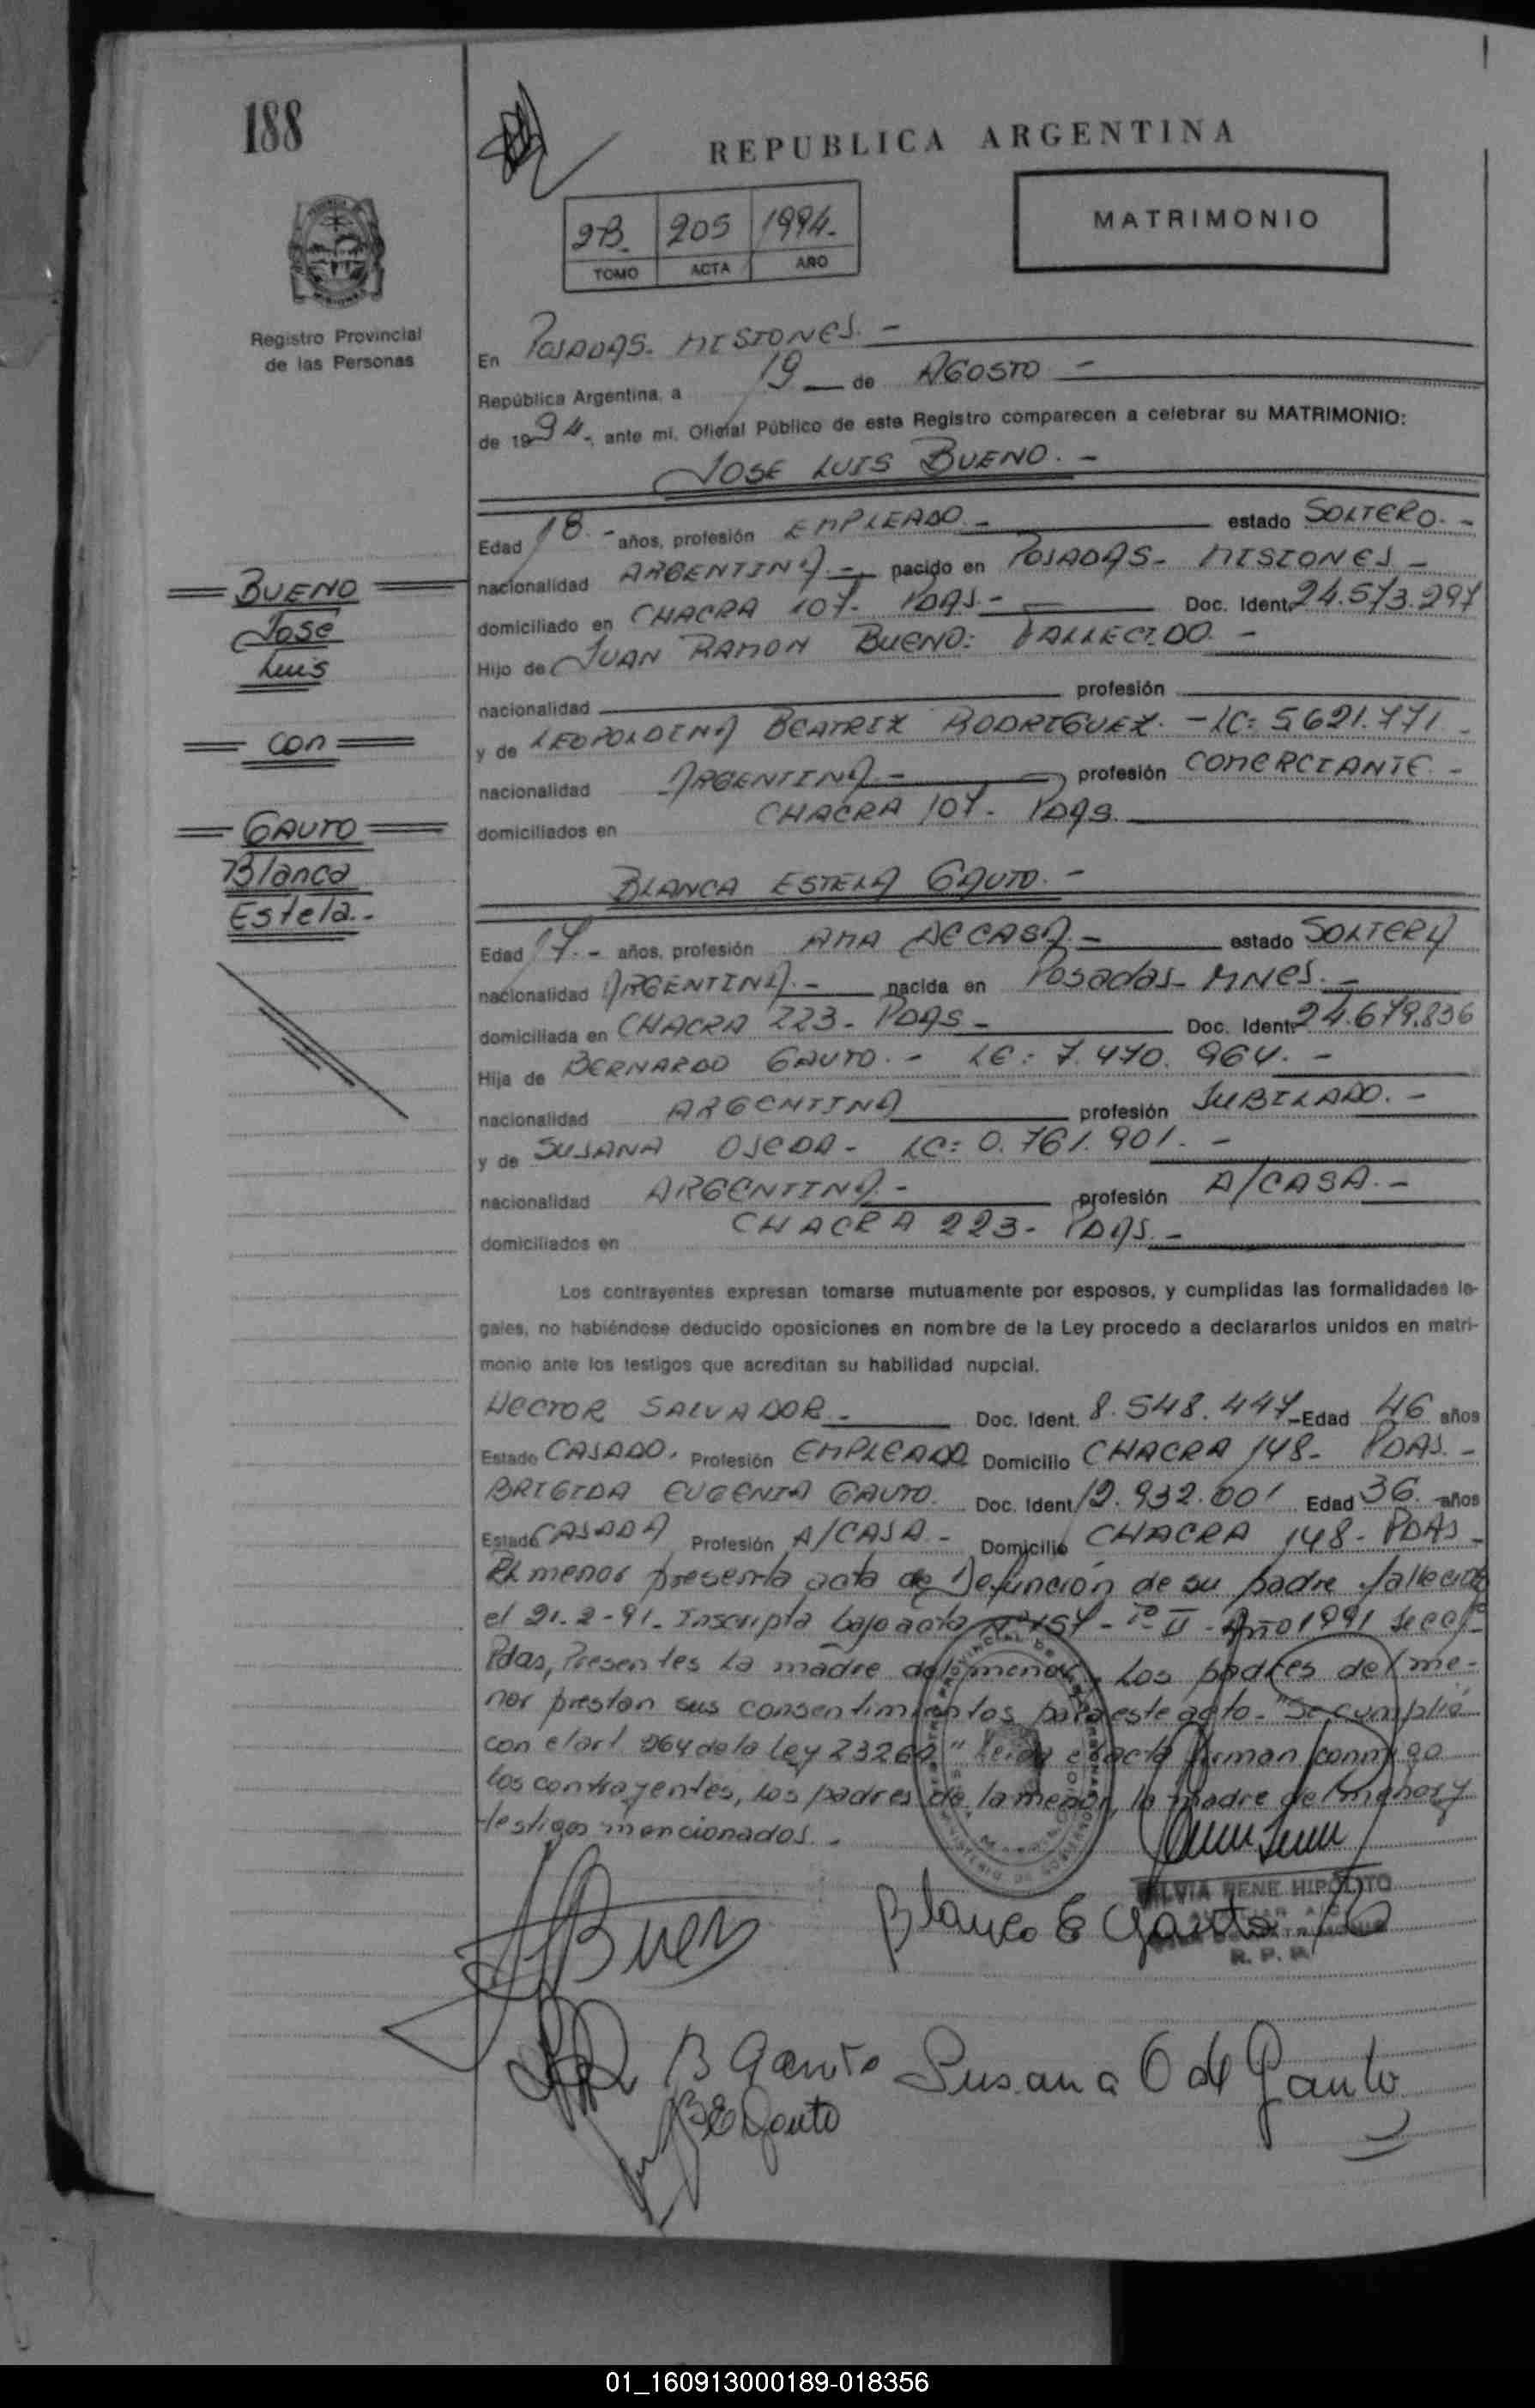 188
REPUBLICA ARGENTINA
2B. 205 1994.-
TOMO ACTA AÑO
MATRIMONIO
Registro Provincial
de las Personas
En POSADAS- MISIONES.-
República Argentina, a 19 de AGOSTO -
de 1994.-, ante mi, Oficial Público de este Registro comparecen a celebrar su MATRIMONIO:
JOSE LUIS BUENO.-
Edad 18.- años, profesión EMPLEADO.- estado SOLTERO.-
nacionalidad ARGENTINA.- nacido en POSADAS- MISIONES-
domiciliado en CHACRA 107- PDAS.- Doc. Ident. 24.573.297
Hijo de JUAN RAMON BUENO: FALLECIDO.-
nacionalidad profesión
y de LEOPOLDINA BEATRIZ RODRIGUEZ.- LC: 5621.771.-
nacionalidad ARGENTINA.- profesión COMERCIANTE.-
domiciliados en CHACRA 107- PDAS.
BUENO
José
Luis
con
GAUTO
Blanca
Estela.-
BLANCA ESTELA GAUTO.-
Edad 17.- años, profesión AMA DE CASA.- estado SOLTERA
nacionalidad ARGENTINA.- nacida en Posadas- MNES.-
domiciliada en CHACRA 223- PDAS- Doc. Ident. 24.679.836
Hija de BERNARDO GAUTO.- LE: 7.470.964.-
nacionalidad ARGENTINA profesión JUBILADO.-
y de SUSANA OJEDA- LC: 0.761.901.-
nacionalidad ARGENTINA- profesión A/CASA.-
domiciliados en CHACRA 223- PDAS.-
Los contrayentes expresan tomarse mutuamente por esposos, y cumplidas las formalidades le-
gales, no habiéndose deducido oposiciones en nombre de la Ley procedo a declararlos unidos en matri-
monio ante los testigos que acreditan su habilidad nupcial.
HECTOR SALVADOR.- Doc. Ident. 8.548.447- Edad 46 años
Estado CASADO. Profesión EMPLEADO Domicilio CHACRA 148- PDAS.-
BRIGIDA EUGENIA GAUTO. Doc. Ident. 12.932.001 Edad 36. años
Estado CASADA Profesión A/CASA.- Domicilio CHACRA 148- PDAS-
El menor presenta acta de Defunción de su padre fallecido
el 21-2-91. Inscripta bajo acta Nº 157- Tº II - Año 1991
Pdas, Presentes la madre del menor, Los padres del me-
nor prestan sus consentimientos para este acto. "Se cumplió
con el art. 264 de la Ley 23264" Leida el acta firman conmigo
los contrayentes, los padres de la menor, la madre del menor y
testigos mencionados.-
Bueno
Blanca E Gauto
SILVIA RENE HIPOLITO
R. P. P.
B Gauto Susana O de Gauto
B E Gauto
01_160913000189-018356